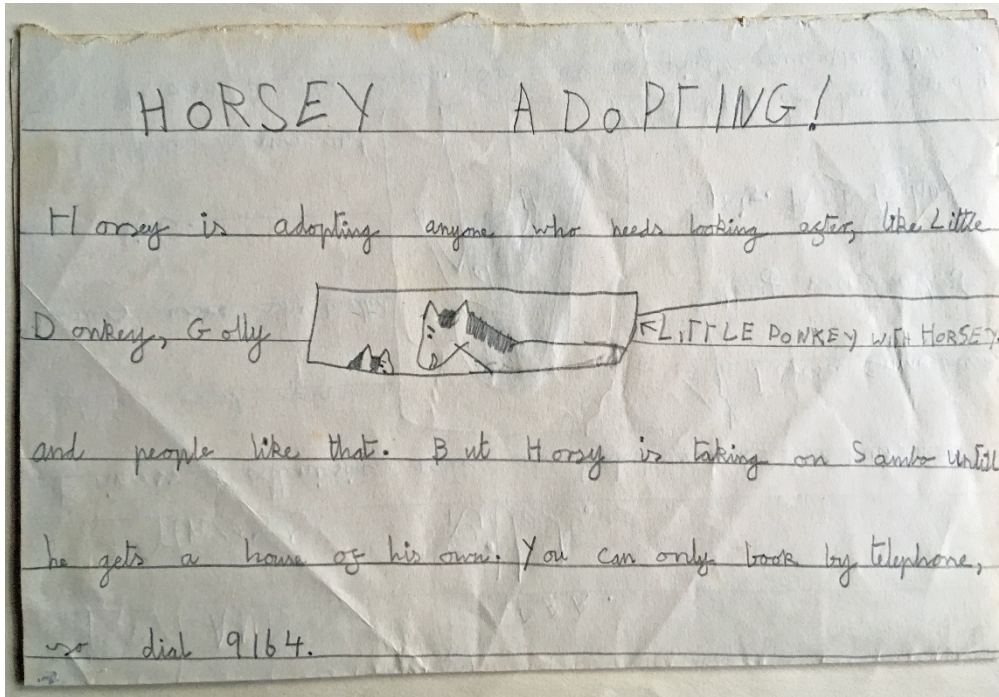 HORSEY ADOPTING!
Horsey is adopting anyone who needs looking after, like Little
Donkey, Golly
←LITTLE DONKEY WITH HORSEY.
and people like that. But Horsy is taking on Sambo untill
he gets a house of his own. You can only book by telephone,
so dial 9164.